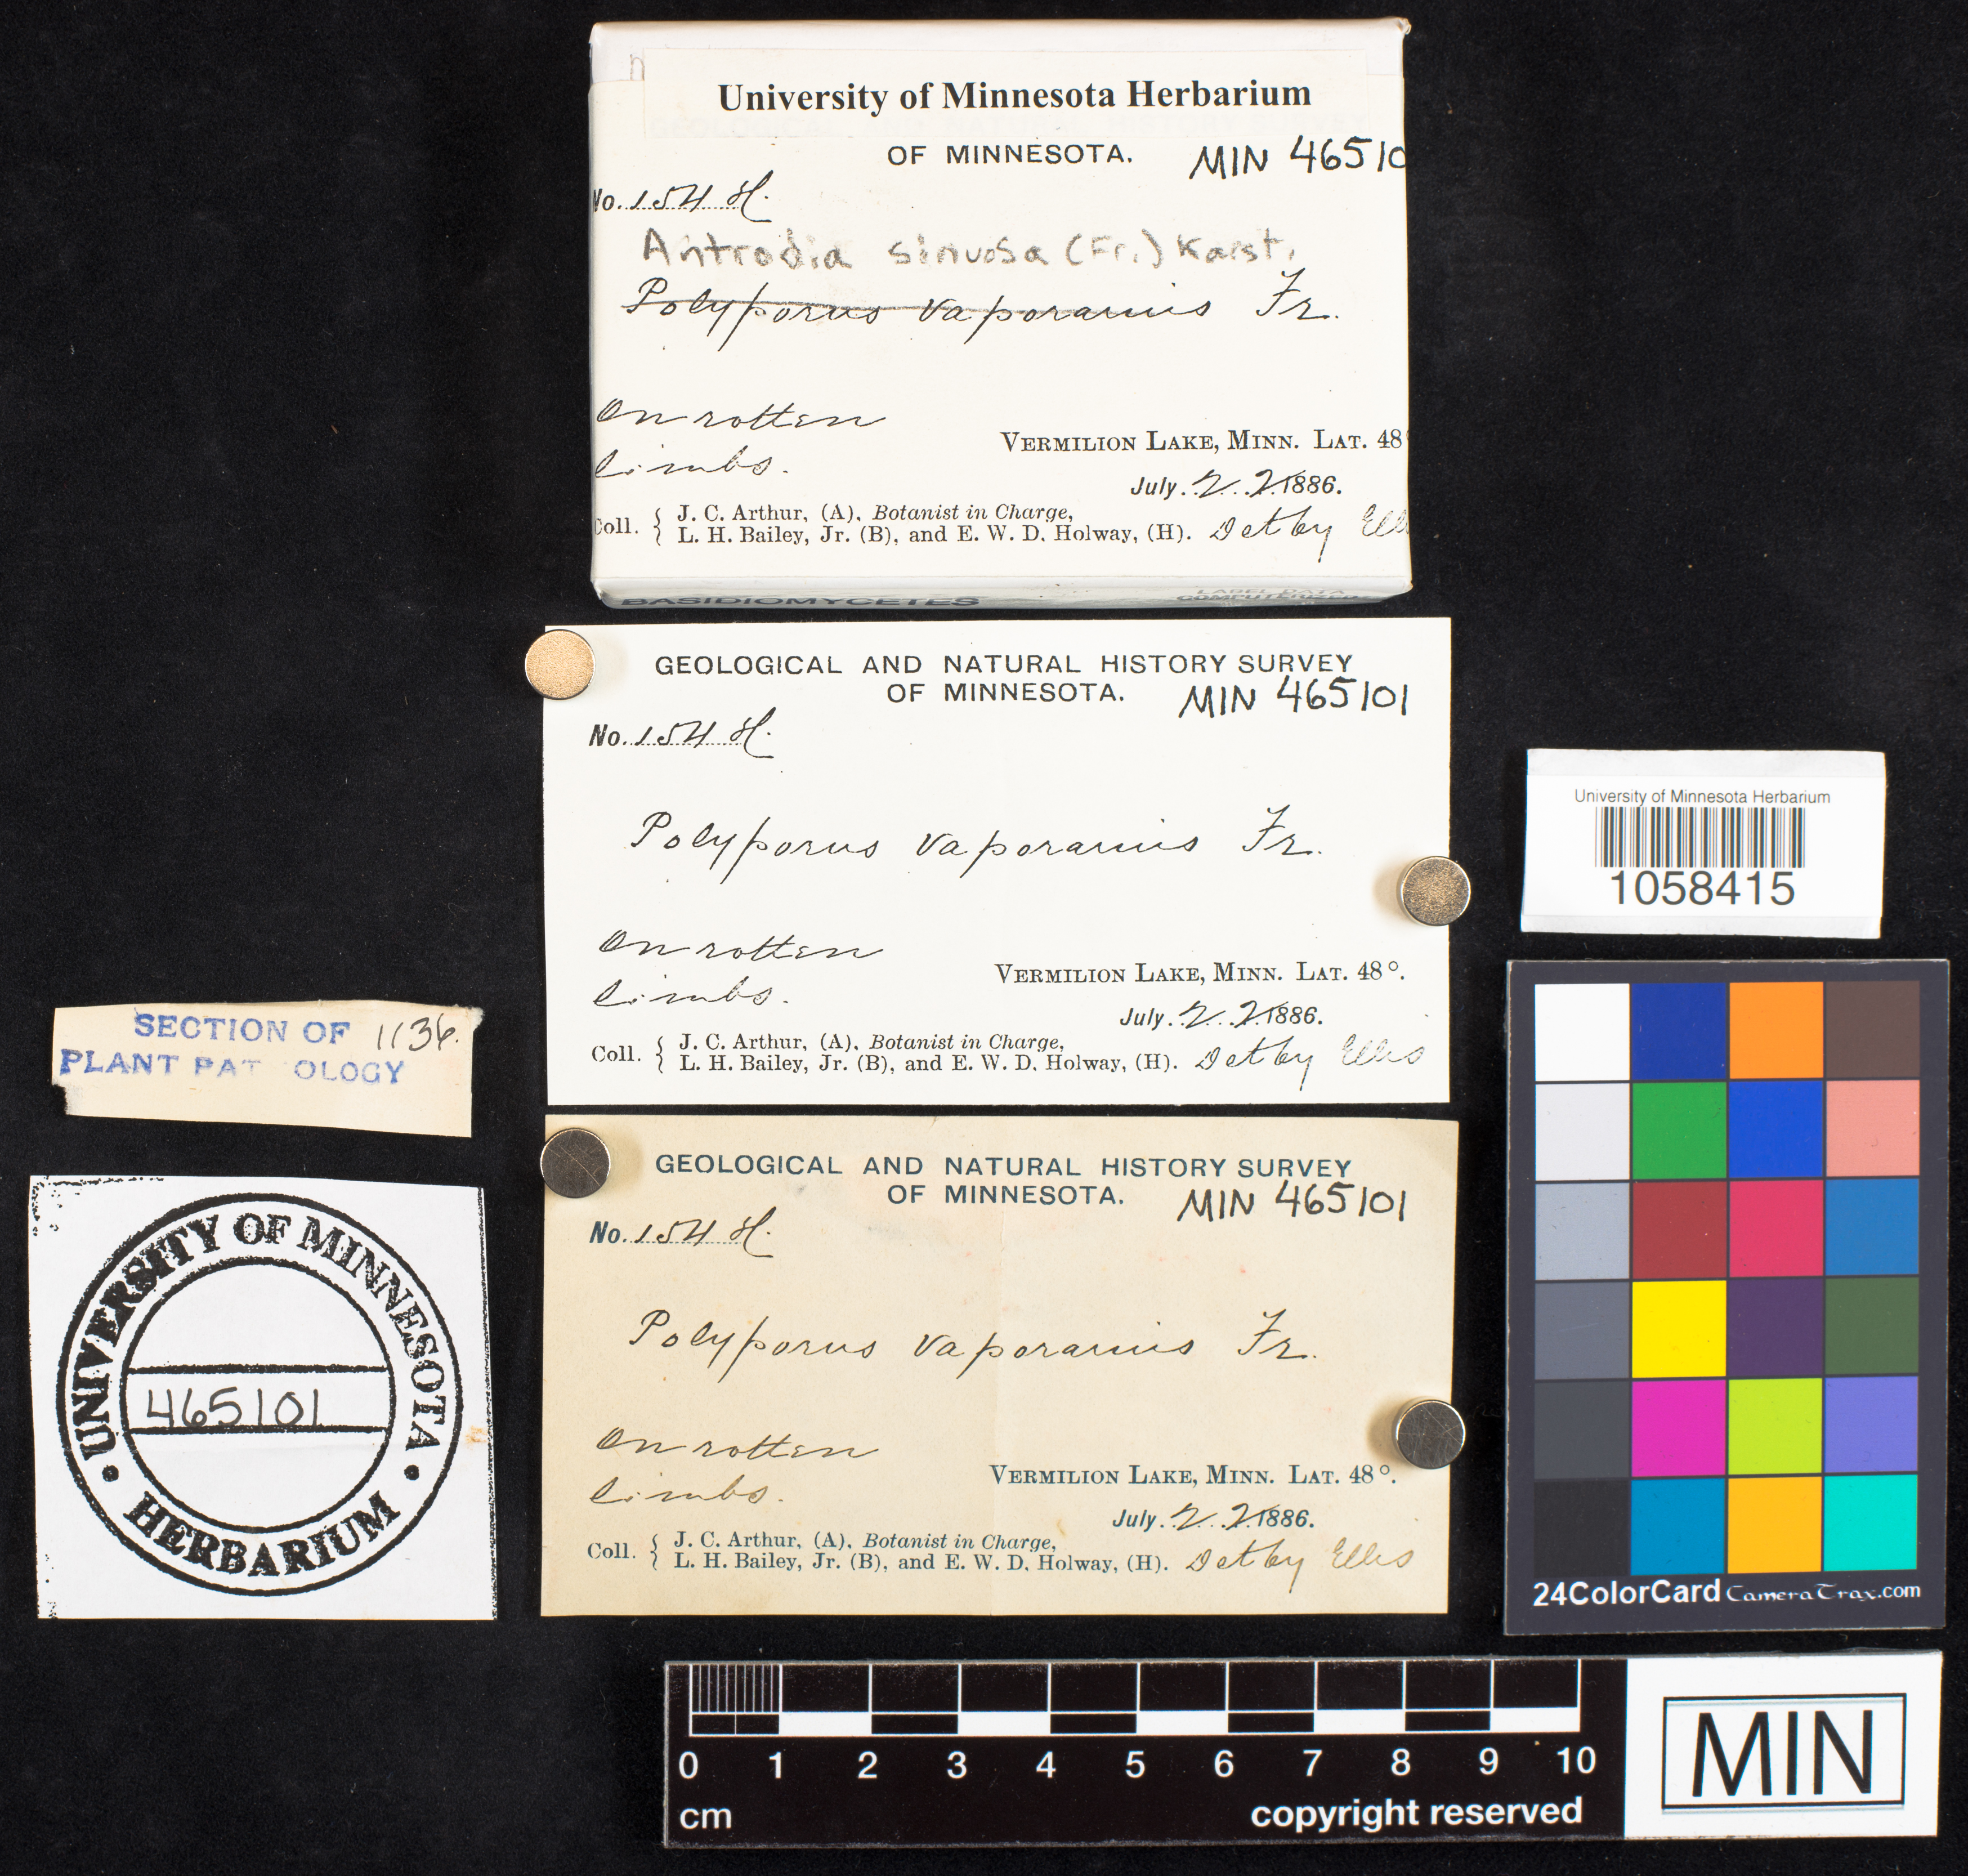 University of Minnesota Herbarium
GEOLOGICAL AND NATURAL HISTORY SURVEY
OF MINNESOTA. MIN 46510
No. 154 H.
Antrodia sinuosa (Fr.) Karst.
Polyporus vaporarius Fr.
On rotten
limbs.
VERMILION LAKE, MINN. LAT. 48°
July 22 1886.
Coll. { J. C. Arthur, (A), Botanist in Charge,
L. H. Bailey, Jr. (B), and E. W. D. Holway, (H). Det by Ell
BASIDIOMYCETES LABEL DATA
COMPUTERIZED
GEOLOGICAL AND NATURAL HISTORY SURVEY
OF MINNESOTA. MIN 465101
No. 154 H.
Polyporus vaporarius Fr.
On rotten
limbs.
VERMILION LAKE, MINN. LAT. 48°.
July 22 1886.
Coll. { J. C. Arthur, (A), Botanist in Charge,
L. H. Bailey, Jr. (B), and E. W. D. Holway, (H). Det by Ellis
University of Minnesota Herbarium
1058415
SECTION OF 1136.
PLANT PAT OLOGY
UNIVERSITY OF MINNESOTA
465101
HERBARIUM
GEOLOGICAL AND NATURAL HISTORY SURVEY
OF MINNESOTA. MIN 465101
No. 154 H.
Polyporus vaporarius Fr.
On rotten
limbs.
VERMILION LAKE, MINN. LAT. 48°.
July 22 1886.
Coll. { J. C. Arthur, (A), Botanist in Charge,
L. H. Bailey, Jr. (B), and E. W. D. Holway, (H). Det by Ellis
24ColorCard CameraTrax.com
0 1 2 3 4 5 6 7 8 9 10
cm copyright reserved
MIN